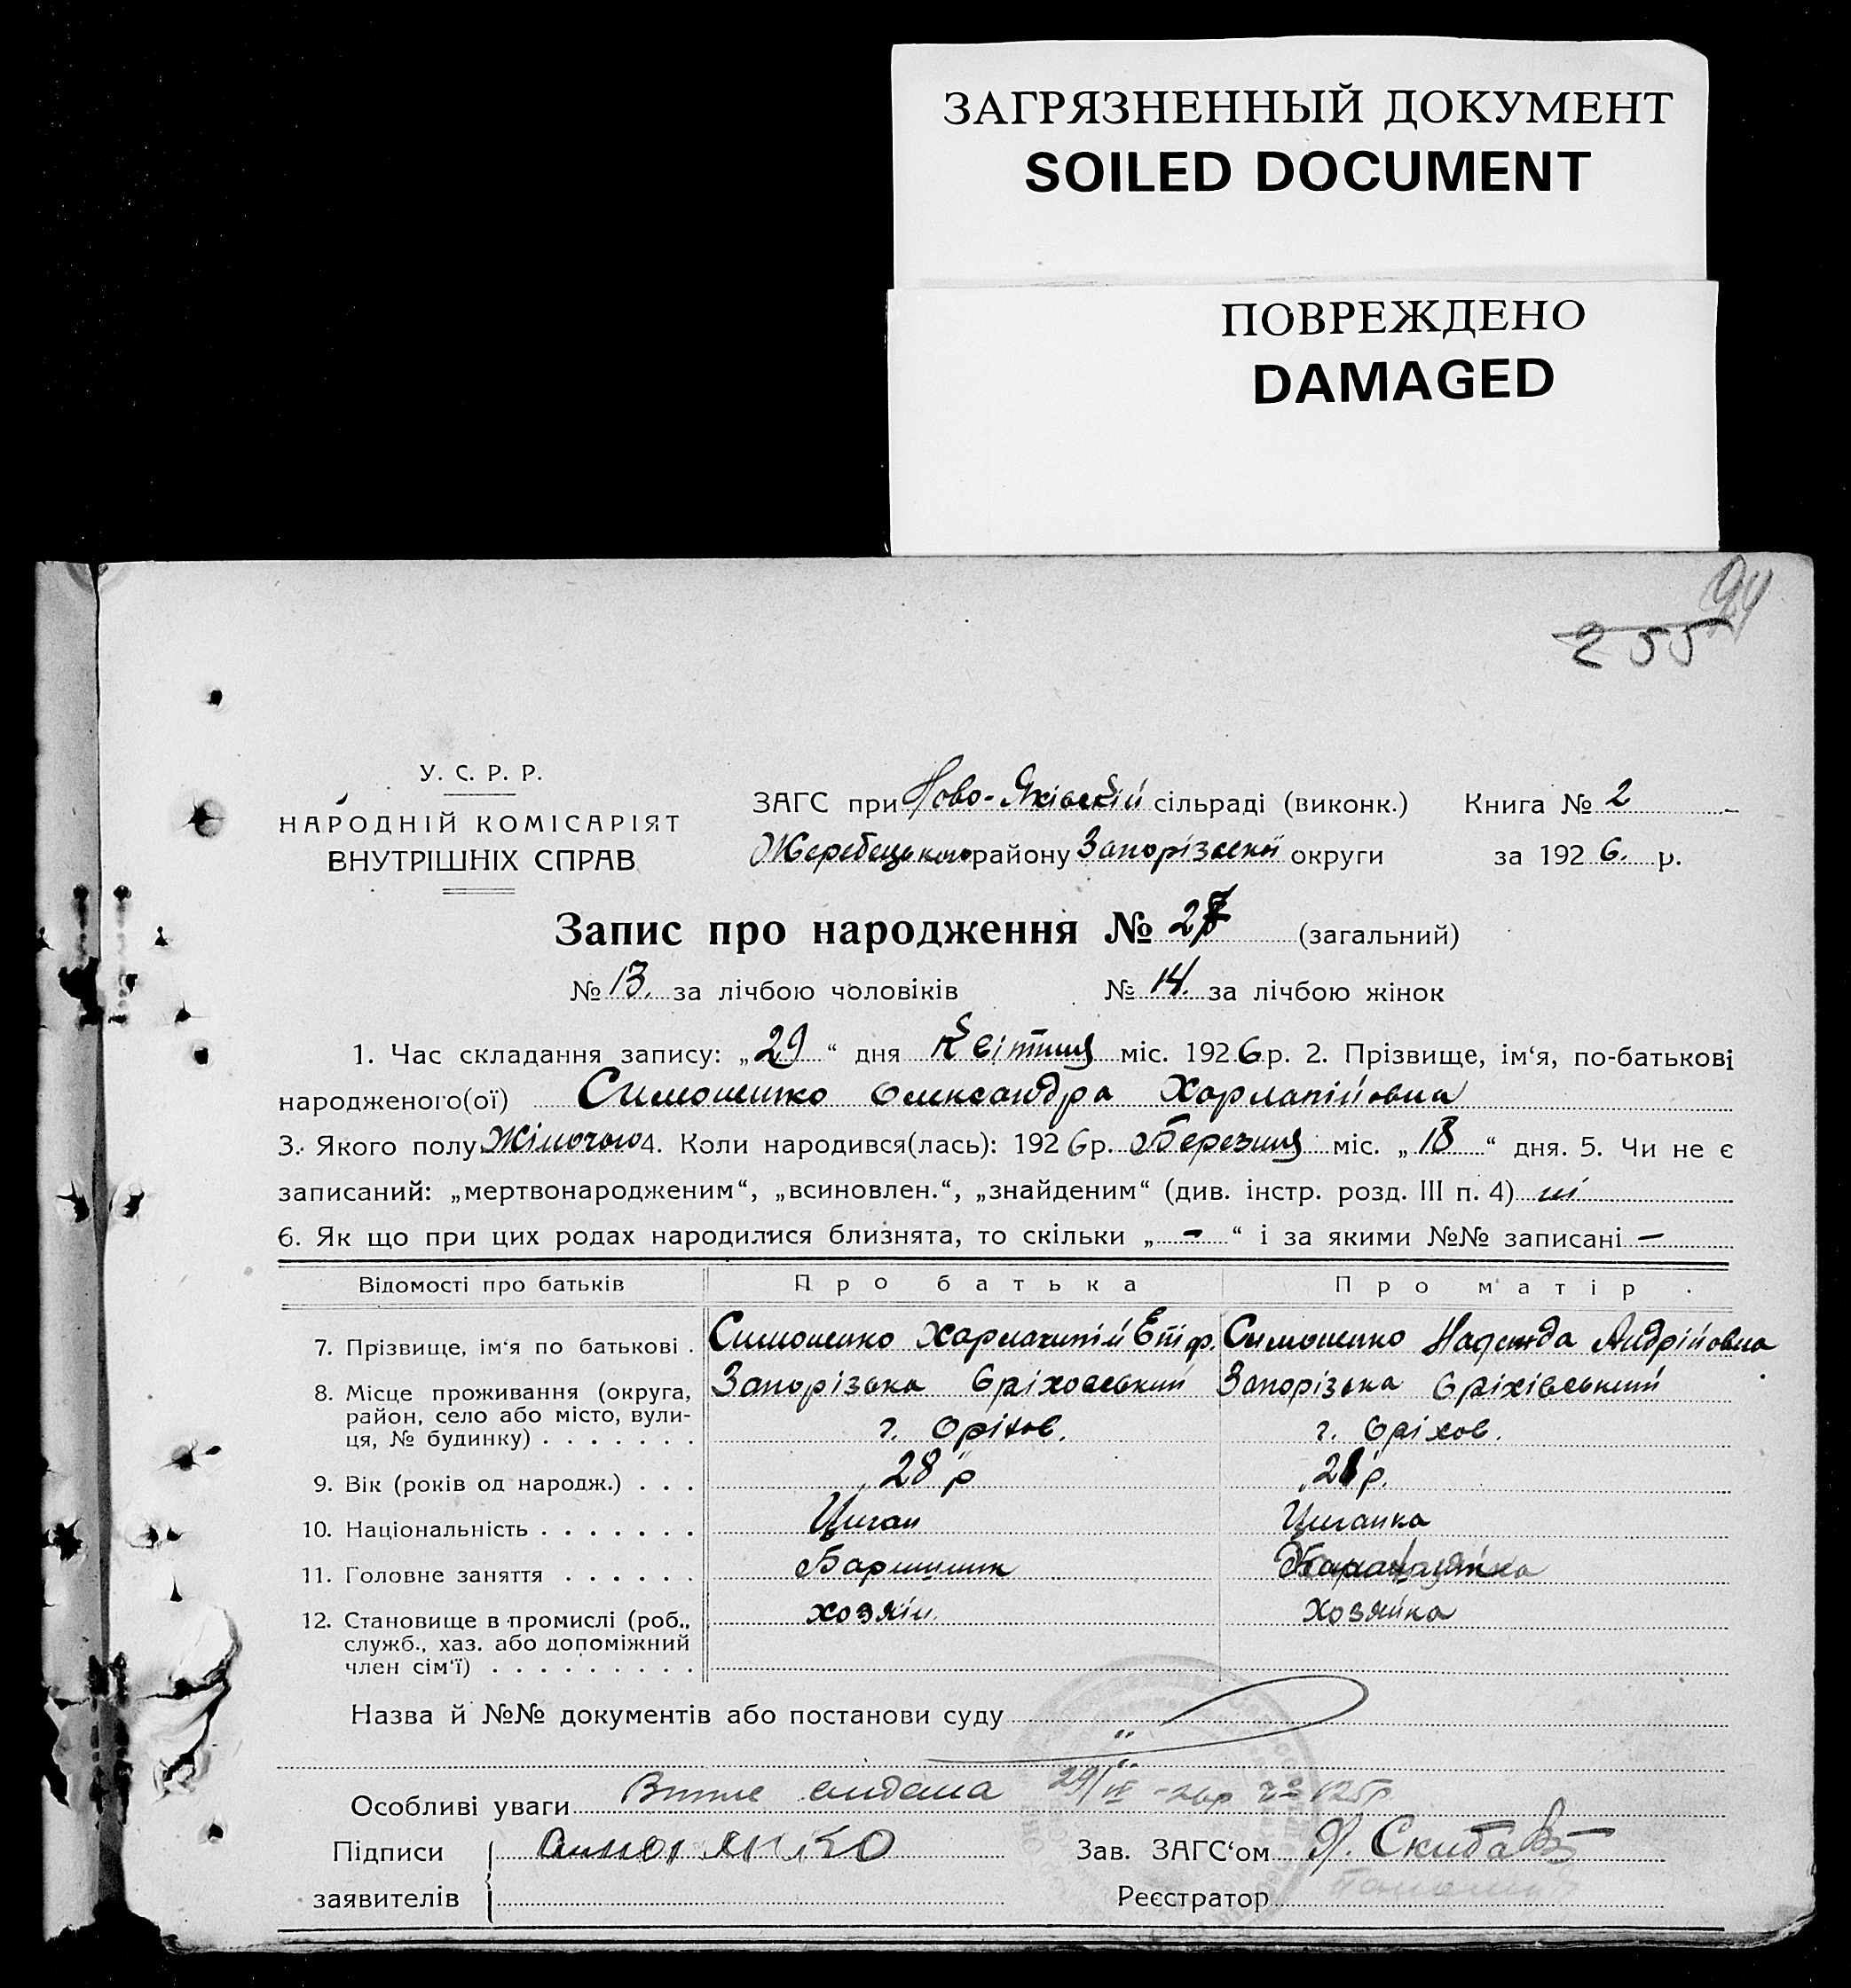 ЗАГРЯЗНЕННЫЙ ДОКУМЕНТ
SOILED DOCUMENT
ПОВРЕЖДЕНО
DAMAGED
94
255
У. С. Р. Р.
НАРОДНІЙ КОМІСАРІЯТ
ВНУТРІШНІХ СПРАВ
ЗАГС при Ново-Яківській сільраді (виконк.) Книга № 2
Жеребецького району Запорізської округи за 1926. р.
Запис про народження № 27 (загальний)
№ 13. за лічбою чоловіків № 14. за лічбою жінок
1. Час складання запису: „29“ дня Квітня міс. 1926 р. 2. Прізвище, ім‘я, по-батькові
народженого(ої) Симоненко Олександра Харлапійовна
3. Якого полу Жіночого 4. Коли народився(лась): 1926 р. Березня міс. „18“ дня. 5. Чи не є
записаний: „мертвонародженим“, „всиновлен.“, „знайденим“ (див. інстр. розд. III п. 4) ні
6. Як що при цих родах народилися близнята, то скільки „ - “ і за якими №№ записані -
Відомості про батьків Про батька Про матір
7. Прізвище, ім‘я по батькові . Симоненко Харлампій Епіф. Симоненко Надежда Андрійовна
8. Місце проживання (округа, Запорізька Оріховський Запорізька Оріхівський
район, село або місто, вули-
ця, № будинку) . . . . . . . г. Оріхов. г. Оріхов.
9. Вік (років од народж.) . . . 28 р 28 р.
10. Національність . . . . . . . Циган Циганка
11. Головне заняття . . . . . . Баришник
12. Становище в промислі (роб., хозяїн. Хозяйка
служб., хаз. або допоміжний
член сім‘ї) . . . . . . . . .
Назва й №№ документів або постанови суду
Особливі уваги Витяг видана 29/IV-26р
Підписи Зав. ЗАГС‘ом Скиба
заявителів Реєстратор